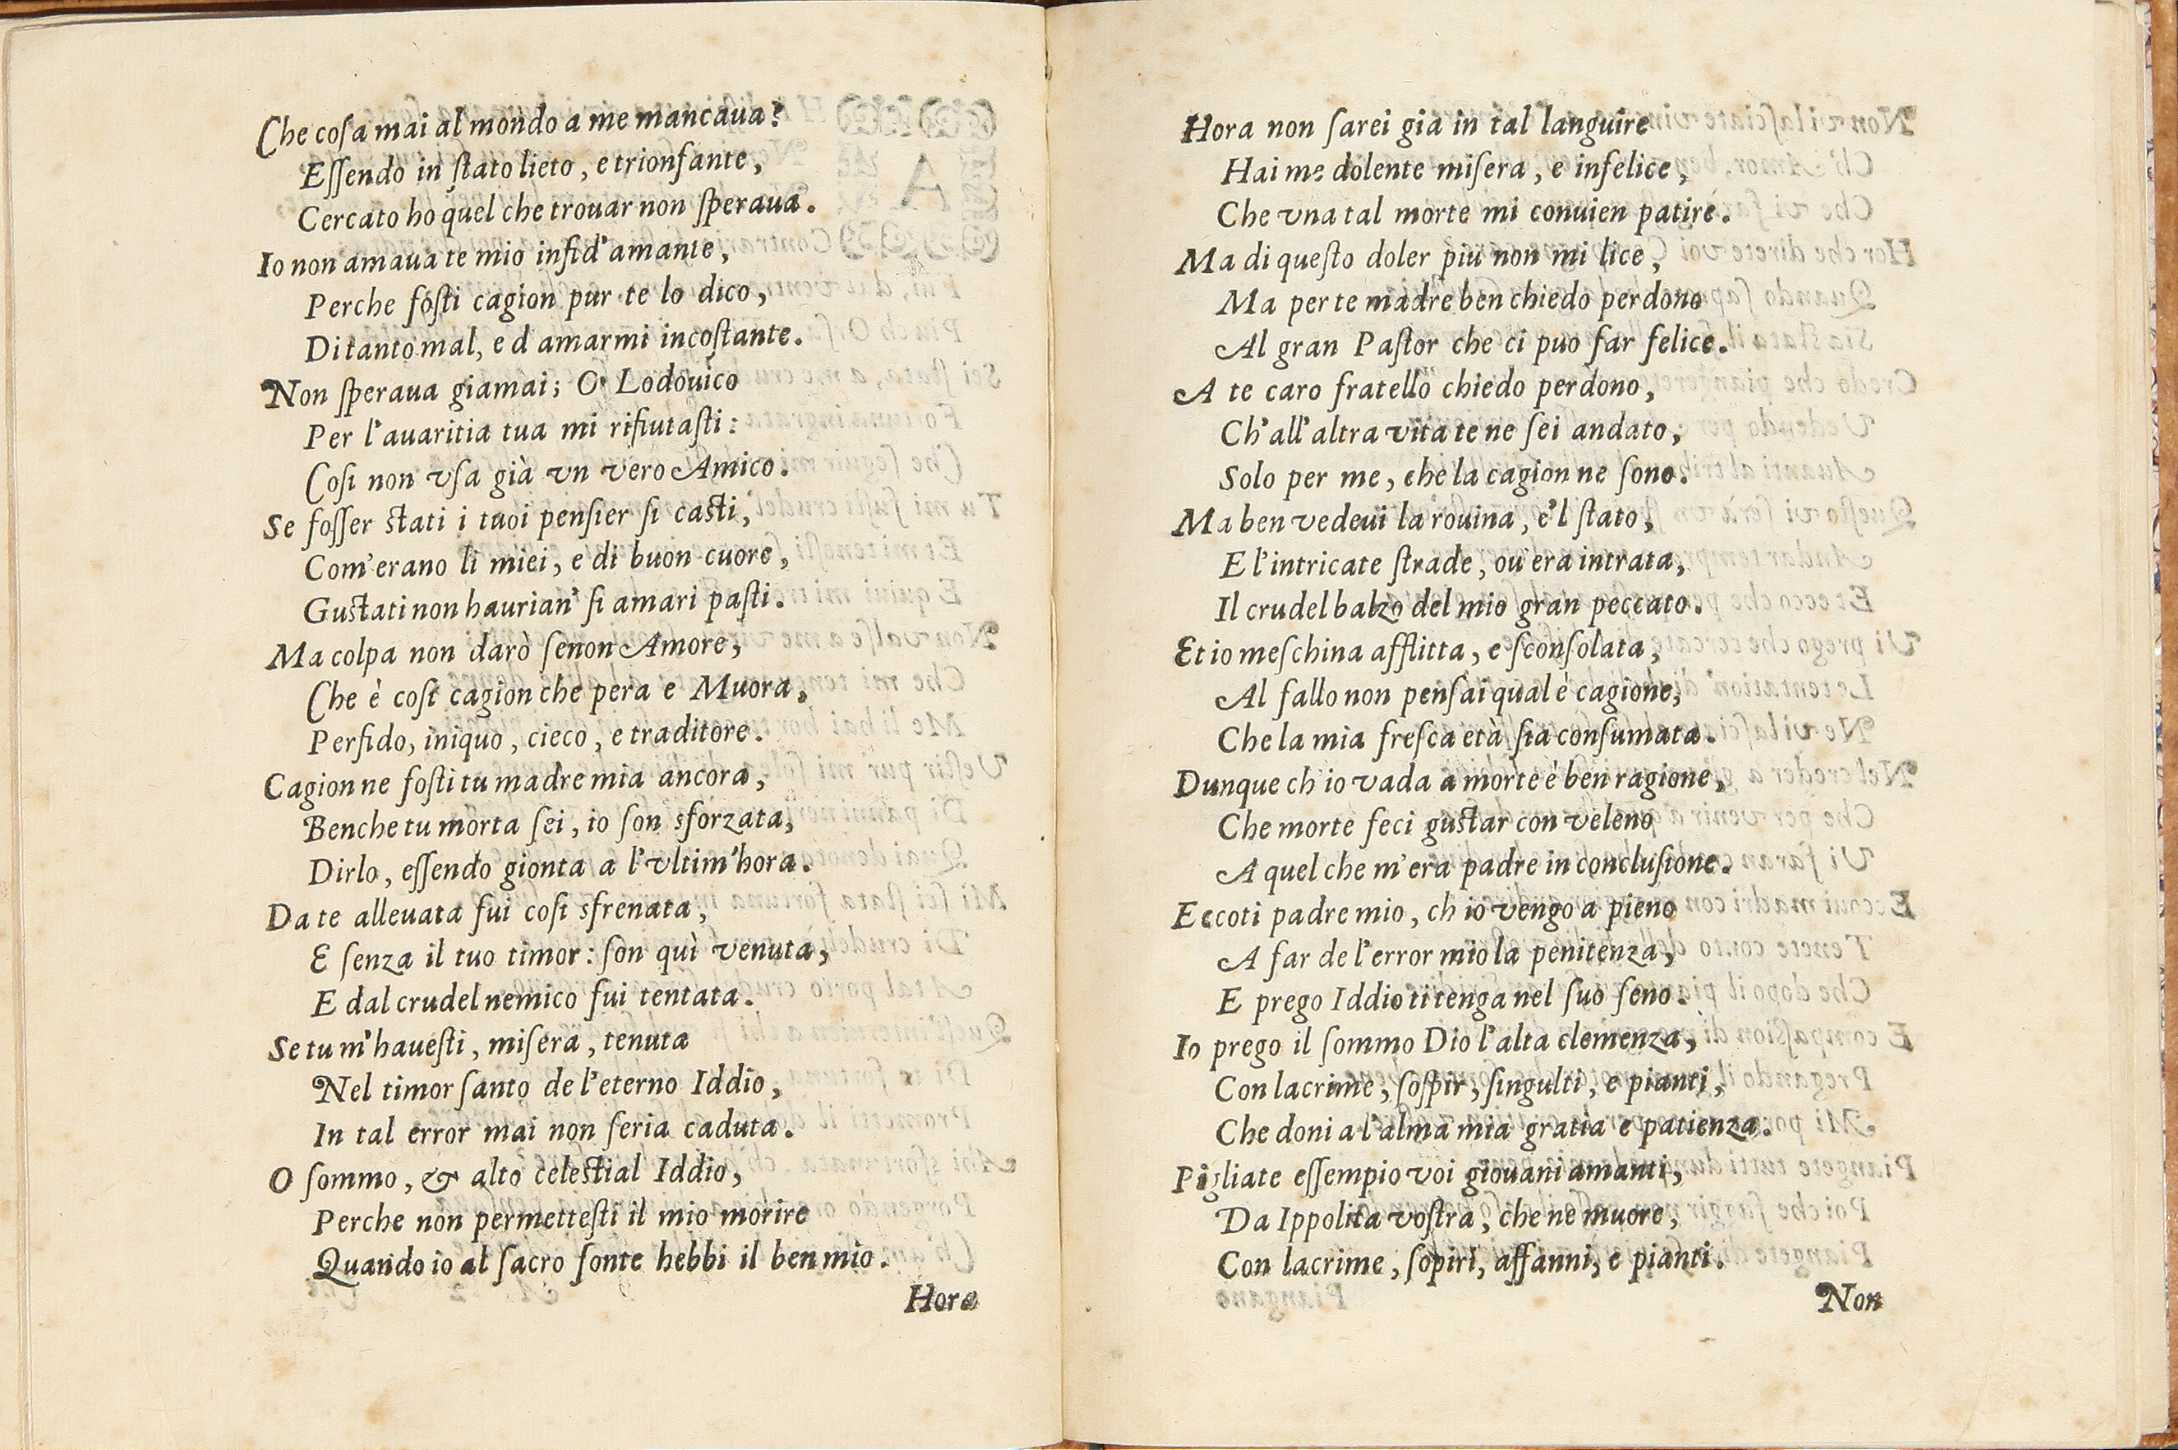 Che coſa mai al mondo a me mancaua?
Eſſendo in ſtato lieto, e trionfante,
Cercato ho quel che trouar non ſperaua.
Io non amaua te mio infid'amante,
Perche foſti cagion pur te lo dico,
Di tanto mal, e d amarmi incoſtante.
Non ſperaua giamai; O Lodouico
Per l'auaritia tua mi rifiutaſti:
Coſi non vſa già vn vero Amico.
Se foſſer ſtati i tuoi penſier ſi caſti,
Com'erano li miei, e di buon cuore,
Guſtati non haurian' ſi amari paſti.
Ma colpa non darò ſenon Amore,
Che è coſi cagion che pera e Muora,
Perfido, iniquo, cieco, e traditore.
Cagion ne foſti tu madre mia ancora,
Benche tu morta ſei, io ſon sforzata,
Dirlo, eſſendo gionta a l'vltim'hora.
Da te alleuata fui coſi sfrenata,
E ſenza il tuo timor: ſon quì venuta,
E dal crudel nemico fui tentata.
Se tu m'haueſti, miſera, tenuta
Nel timor ſanto de l'eterno Iddio,
In tal error mai non ſeria caduta.
O ſommo, & alto celeſtial Iddio,
Perche non permetteſti il mio morire
Quando io al ſacro fonte hebbi il ben mio.
Hora
Hora non ſarei gia in tal languire
Hai me dolente miſera, e infelice,
Che vna tal morte mi conuien patire.
Ma di queſto doler piu non mi lice,
Ma per te madre ben chiedo perdono
Al gran Paſtor che ci puo far felice.
A te caro fratello chiedo perdono,
Ch'all'altra vita te ne ſei andato,
Solo per me, che la cagion ne ſono.
Ma ben vedeui la rouina, e'l ſtato,
E l'intricate ſtrade, ou'era intrata,
Il crudel balzo del mio gran peccato.
Et io meſchina afflitta, e ſconſolata,
Al fallo non penſai qual è cagione,
Che la mia freſca età ſia conſumata.
Dunque ch io vada a morte è ben ragione,
Che morte feci guſtar con veleno
A quel che m'era padre in concluſione.
Eccoti padre mio, ch io vengo a pieno
A far de l'error mio la penitenza,
E prego Iddio ti tenga nel ſuo ſeno.
Io prego il ſommo Dio l'alta clemenza,
Con lacrime, ſoſpir, ſingulti, e pianti,
Che doni a l'alma mia gratia e patienza.
Pigliate eſſempio voi giouani amanti,
Da Ippolita voſtra, che ne muore,
Con lacrime, ſopiri, affanni, e pianti.
Non